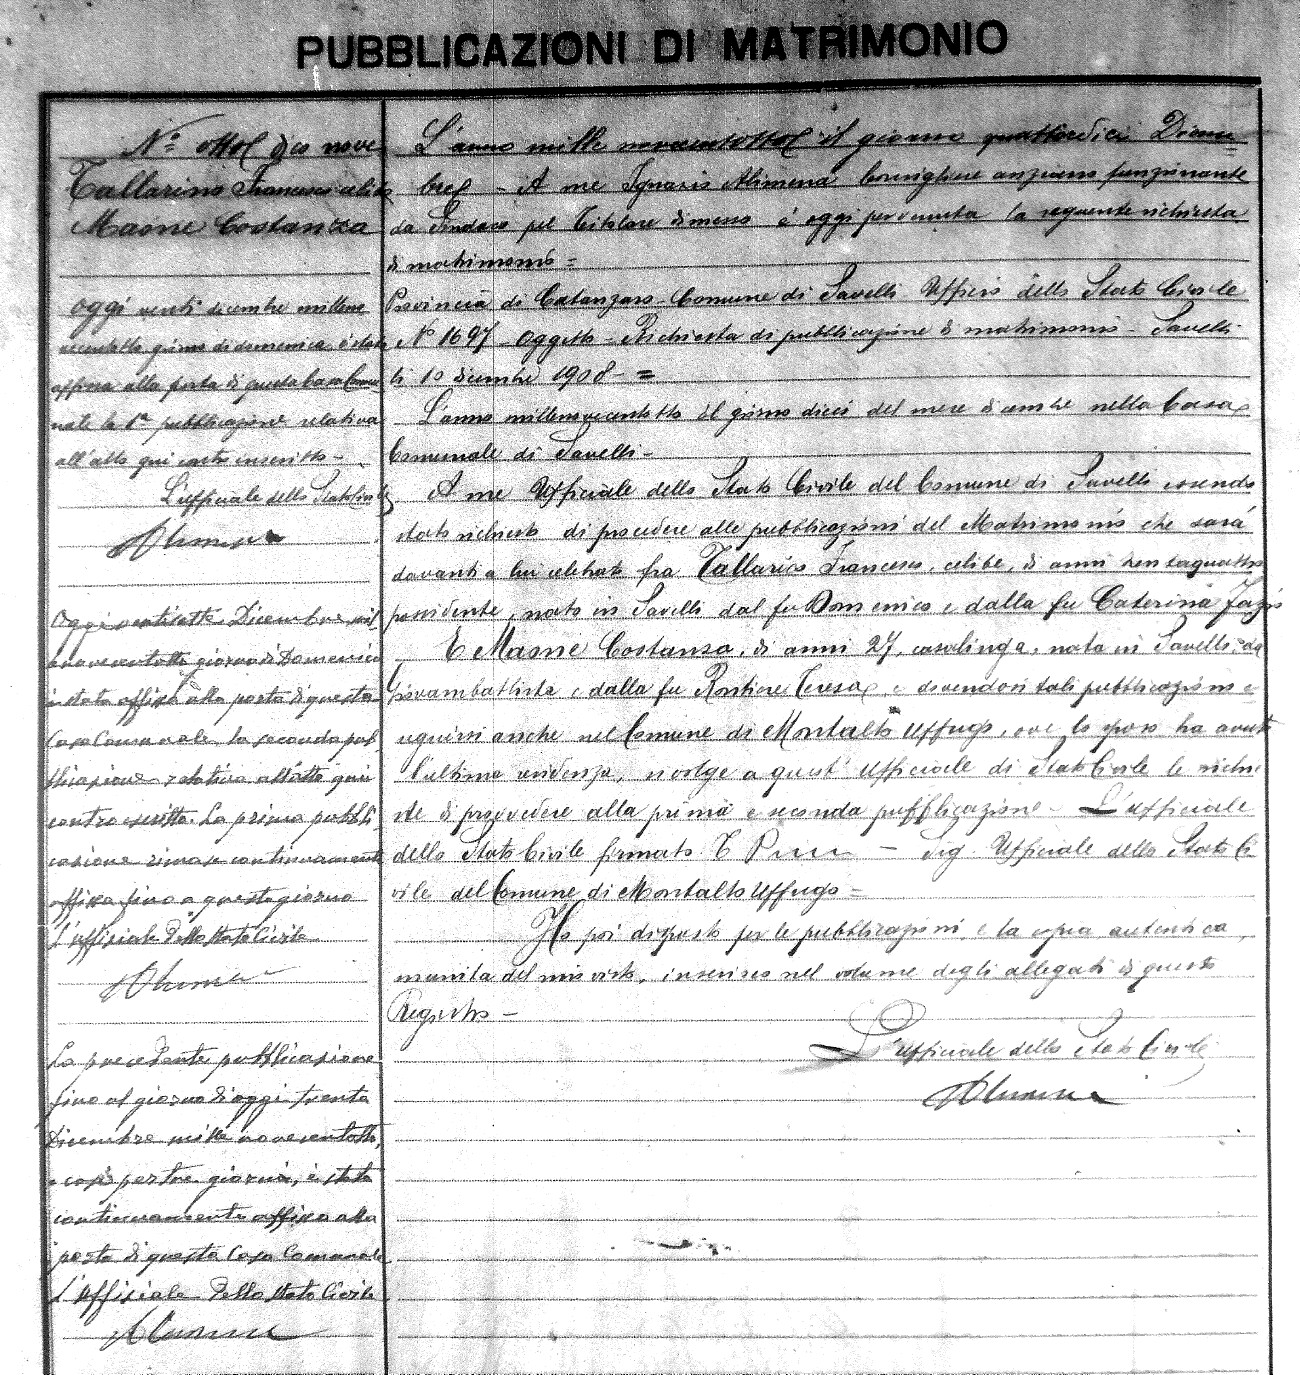 PUBBLICAZIONI DI MATRIMONIO
N.°
Tallarino Francesco celibe
Maone Costanza
Oggi venti dicembre millenove
centotto giorno di domenica è stata
affissa alla porta di questa Casa Comu
nale la 1ª pubblicazione relativa
all'atto qui contro inscritto -
L'ufficiale dello Stato Civile
Alimena
Oggi ventisette Dicembre mil
lenovecentotto giorno di Domenica
è stata affissa alla porta di questa
Casa Comunale la seconda pub
blicazione relativa all'atto qui
contro iscritto. La prima pubbli
cazione rimase continuamente
affissa fino a questo giorno
L'uffiziale dello Stato Civile
Alimena
La precedente pubblicazione
fino al giorno di oggi trenta
Dicembre mille novecentotto,
e così per tre giorni, è stata
continuamente affissa alla
porta di questa Casa Comunale
L'Uffiziale dello Stato Civile
Alimena
L'anno mille novecentotto il giorno quattordici Dicem
bre - A me Ignazio Alimena Consigliere anziano funzionante
da Sindaco pel Titolare dimesso è oggi pervenuta la seguente richiesta
di matrimonio =
Provincia di Catanzaro - Comune di Savelli Ufficio dello Stato Civile
N° 1697 - Oggetto - Richiesta di pubblicazione di matrimonio - Savelli
li 10 dicembre 1908 =
L'anno millenovecentotto il giorno dieci del mese dicembre nella Casa
Comunale di Savelli -
A me Ufficiale dello Stato Civile del Comune di Savelli essendo
stato richiesto di procedere alle pubblicazioni del Matrimonio che sarà
davanti a lui celebrato fra Tallarico Francesco, celibe, di anni trentaquattro
possidente, nato in Savelli dal fu Domenico e dalla fu Caterina
E Maone Costanza, di anni 27, casalinga, nata in Savelli da
Giovambattista e dalla fu Teresa e dovendosi tali pubblicazioni e
seguirsi anche nel Comune di Montalto Uffugo, ove lo sposo ha avuto
l'ultima residenza, rivolge a quest' Ufficiale di Stato Civile le richie
ste di provvedere alla prima e seconda pubblicazione - L'ufficiale
dello Stato Civile firmato T - Sig. Ufficiale dello Stato Ci
vile del Comune di Montalto Uffugo =
Ho poi disposto per le pubblicazioni, e la copia autentica,
munita del mio visto, inserisco nel volume degli allegati di questo
Registro -
L'ufficiale dello Stato Civile
Alimena